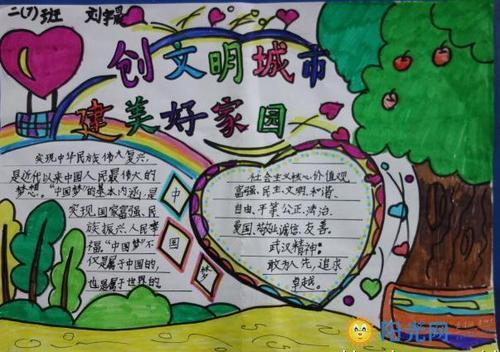 二(7)班 刘宇晨
创文明城市
建美好家园
实现中华民族伟大复兴,
是近代以来中国人民最伟大的
梦想。"中国梦"的基本内涵是
实现国家富强、民
族振兴、人民幸
福。"中国梦"不
仅是属于中国的,
也是属于世界的
中
国
梦
社会主义核心价值观
富强、民主、文明、和谐、
自由、平等、公正、法治、
爱国、敬业、诚信、友善。
武汉精神:
敢为人先,追求
卓越。
阳光网